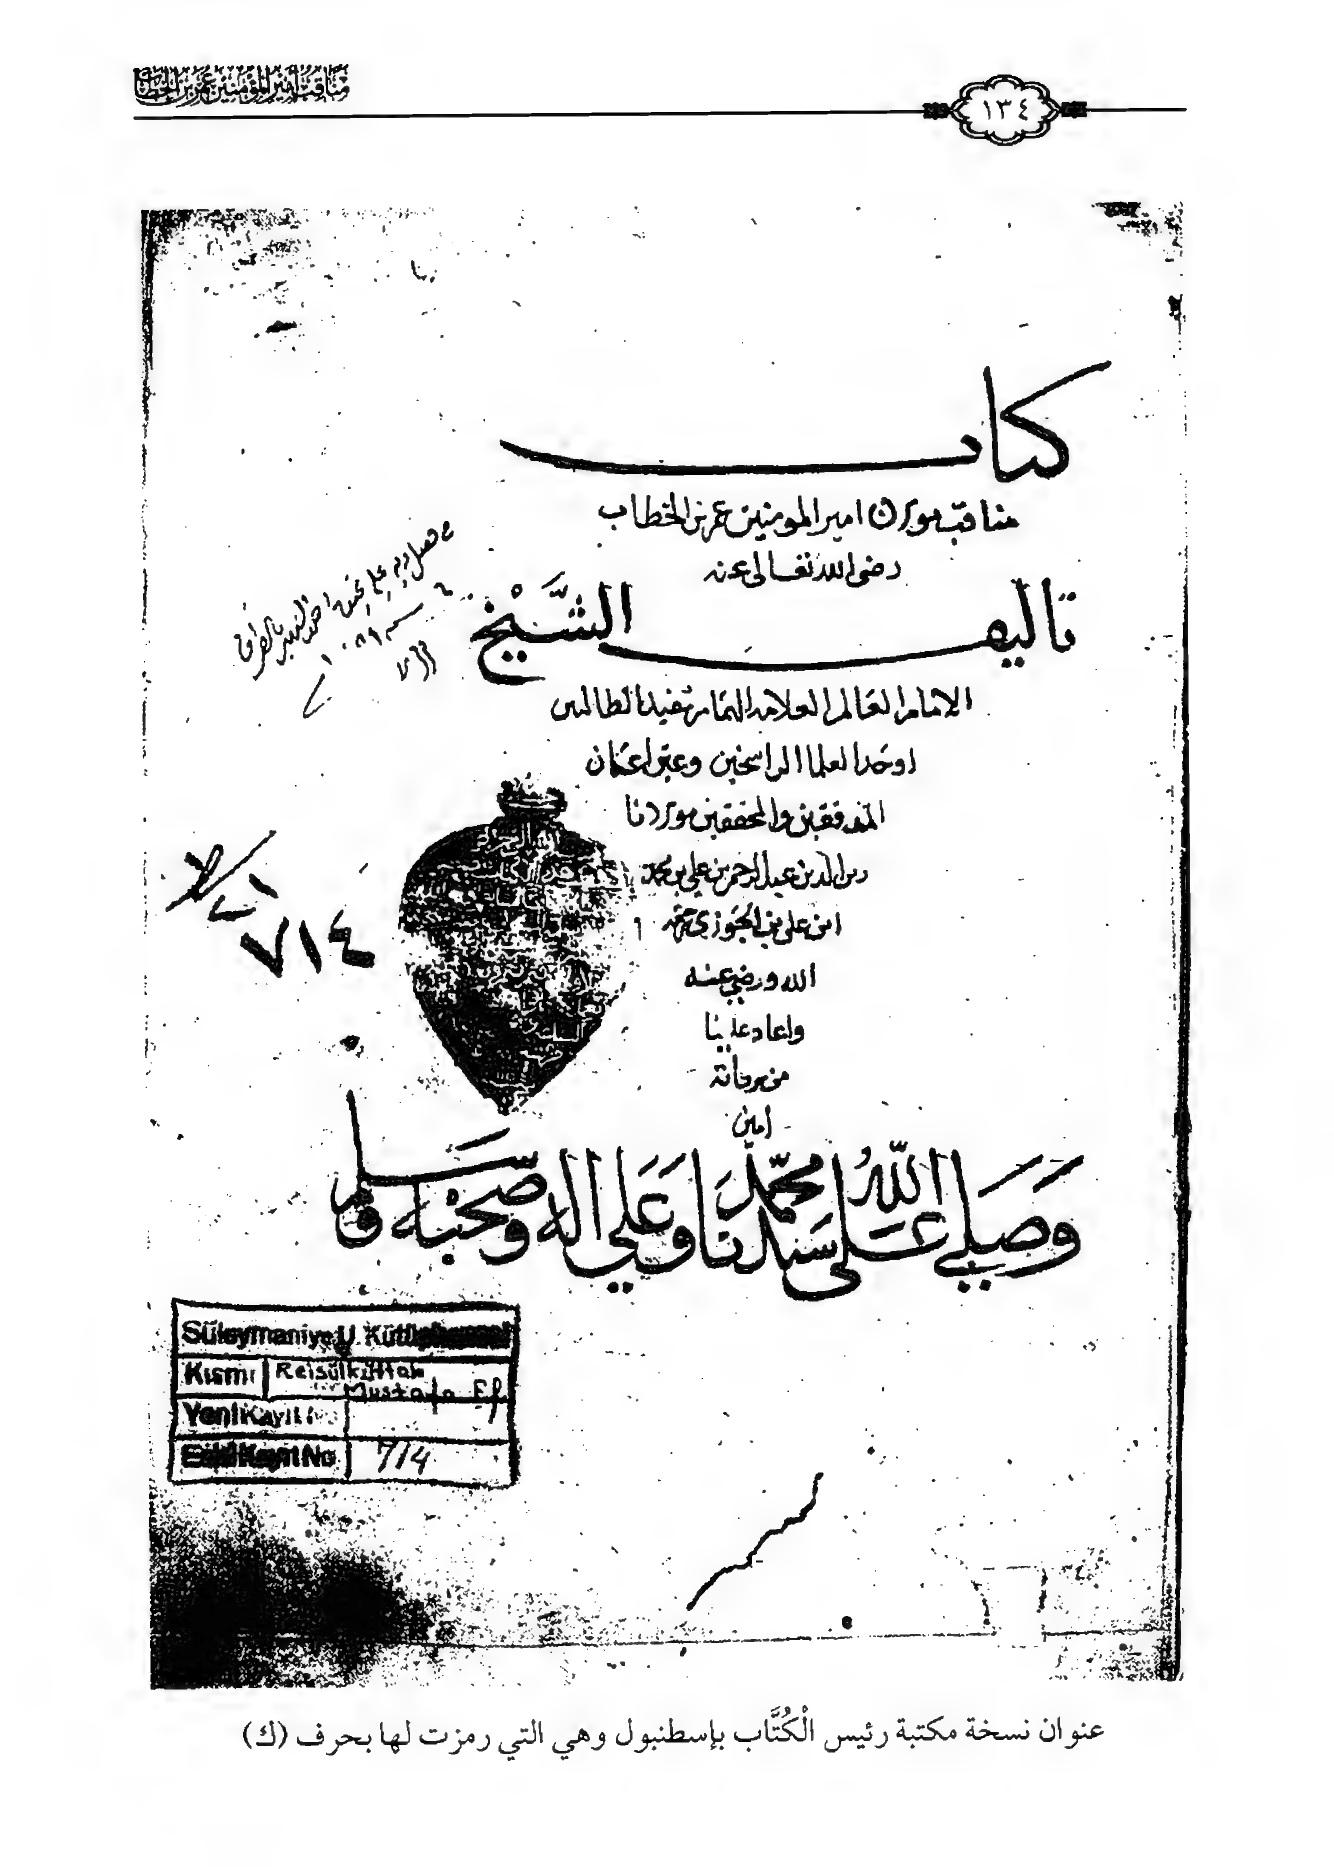 مناقب أمير المؤمنين عمر بن الخطاب
١٣٤
كتاب
مناقب مولانا امير المومنين عمر بن الخطاب
رضي الله تعالى عنه
تاليف الشيخ
الامام العالم العلامه الهمام مفيد الطالبين
اوحد العلما الراسخين وعين اعيان
المدققين والمحققين مولانا
عبد الرحمن بن علي بن محمد
ابن علي بن الجوزي رحمه
الله ورضي عنه
واعاد علينا
من بركاته
امين
وصلى الله على سيدنا محمد وعلى اله وصحبه وسلم
٧١٤
Süleymaniye U. Kütüphanesi
Kısmı Reisülküttab Mustafa Ef.
Yeni Kayıt No
Eski Kayıt No 714
عنوان نسخة مكتبة رئيس الْكُتَّاب بإسطنبول وهي التي رمزت لها بحرف (ك)